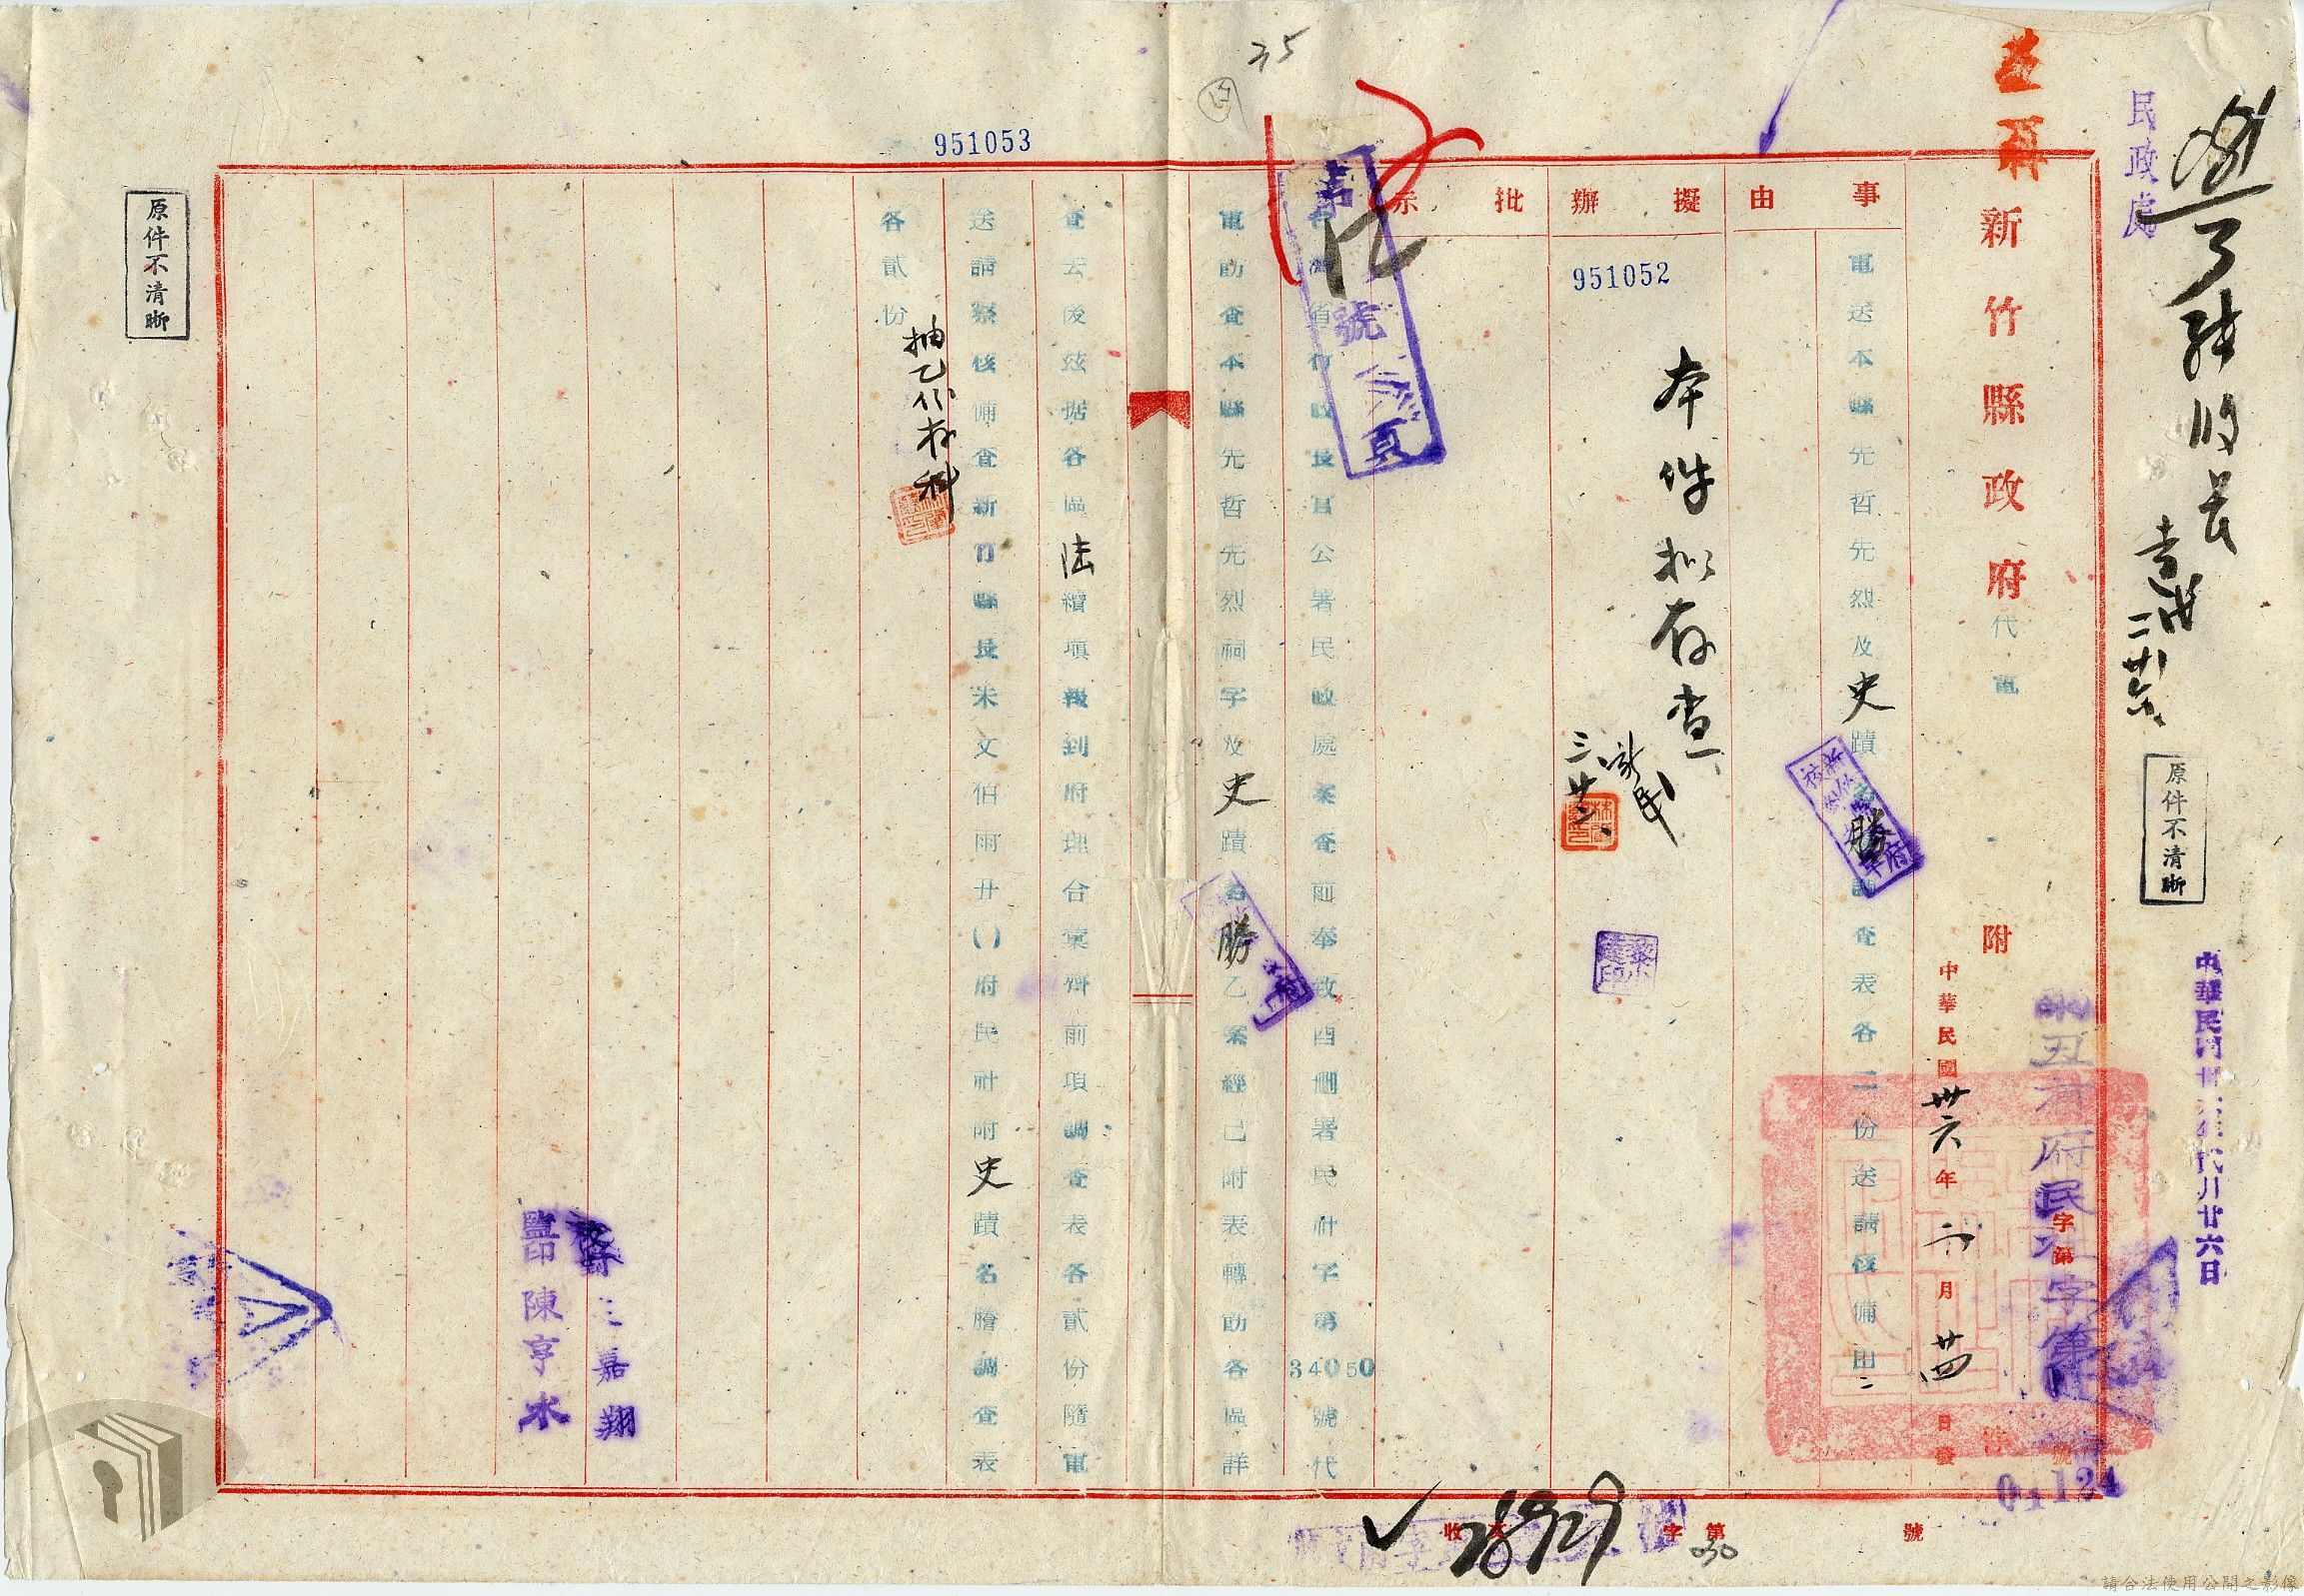 民政處
中華民國卅六年弍月廿六日
原件不清晰
新竹縣政府代電
附
件
中華民國卅六年二月廿四日發
府民社字第
號
01124
事由
電送本縣先哲先烈及史蹟名勝調查表各二份送請核備由
擬辦
951052
本件拟存查
批示
台灣省行政長官公署民政處案查前奉致酉刪署民社字第34050號代
電飭查本縣先哲先烈祠字及史蹟名勝乙案經已附表轉飭各區詳
查去後茲据各區陸續填報到府理合彙齊前項調查表各貳份隨電
送請察核備查新竹縣長朱文伯雨廿()府民社附史蹟名勝調查表
各貳份
抽乙份存科
951053
35
監印陳亨水
校對王嘉翔
原件不清晰
收文字第號
28929
030
請合法使用公開之影像